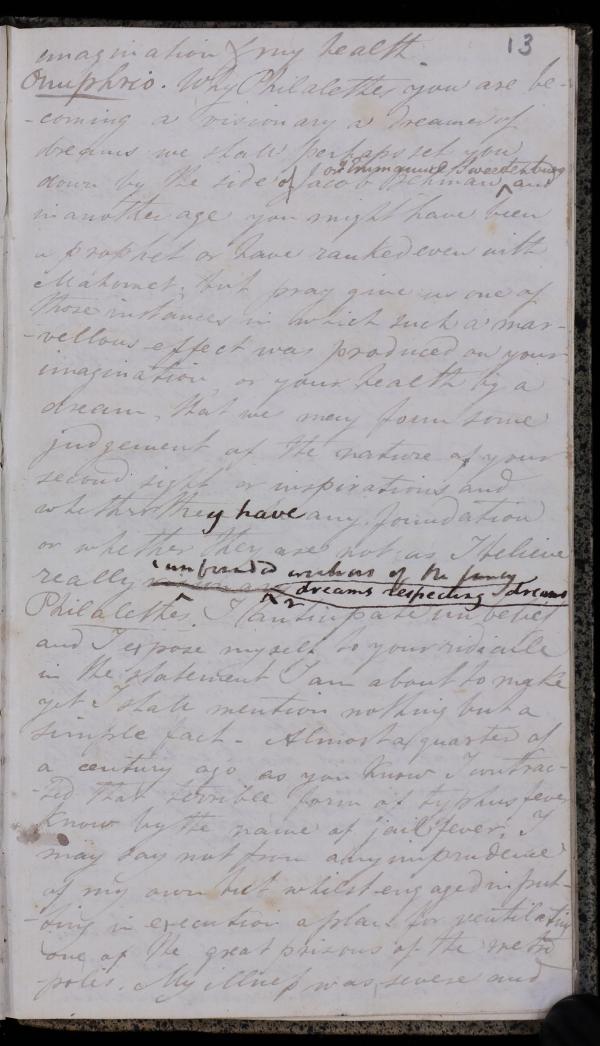 13
imagination & my health
Onuphrio. Why Philalethes you are be-
-coming a visionary a dreamer of
dreams we shall perhaps set you
or Emmanuel Swedenburg
down by the side of Jacob Behman and
in another age you might have been
a prophet or have ranked even with
Mahomet, but pray give us one of
those instances in which such a mar-
-vellous effect was produced on your
imagination or your health by a
dream, that we may form some
judgement of the nature of your
second sight or inspirations and
whether they have any foundation
or whether they are not as I believe
really unfounded visions of the fancy
dreams respecting dreams
Philalethes. I anticipate unbelief
and I expose myself to your ridicule
in the statement I am about to make
yet I shall mention nothing but a
simple fact - Almost a quarter of
a century ago as you know I contrac-
-ted that terrible form of typhus fever
know by the name of jail fever; I
may say not from any imprudence
of my own but whilst engaged in put-
-ting in execution a plan for ventilating
one of the great prisons of the metro
-polis. My illness was severe and